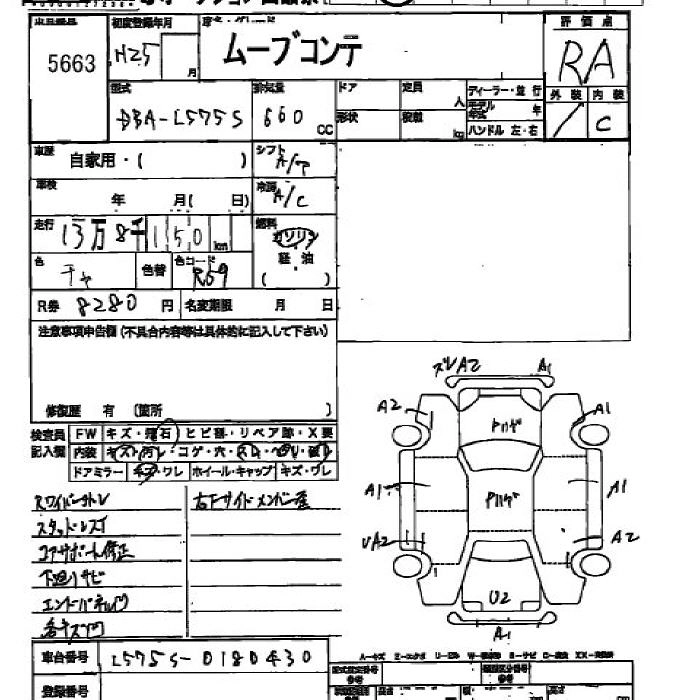 出品番号 初度登録年月 車名・グレード 評価点
5663 H25 月 ムーブコンテ RA
型式 排気量 ドア 定員 人 ディーラー・並行 外装 内装
DBA-L575S 660 CC 形状 積載 kg モデル年式 年 / C
ハンドル 左・右
車歴 自家用・( ) シフト A/T
車検 年 月( 日) 冷房 A/C
走行 13万8千150km 燃料 ガソリン
軽油
( )
色 チャ 色替 色コード R59
R券 8280 円 名変期限 月 日
注意事項申告欄(不具合内容等は具体的に記入して下さい)
修復歴 有 (箇所 )
検査員 FW キズ・飛石 ヒビ割・リペア跡・X要
記入欄 内装 キズ・汚レ・コゲ・穴・スレ・ヘタリ・破レ
ドアミラー キズ・ワレ ホイール・キャップ キズ・ワレ
スタッドレス丁
コアサポート修正
下廻リサビ
エンドパネル凹
各キズ凹
右Fサイドメンバー歪
ズレA2 A1
A2 A1
A1 A1
A2
U2
A1
車台番号 L575S-0180430
登録番号